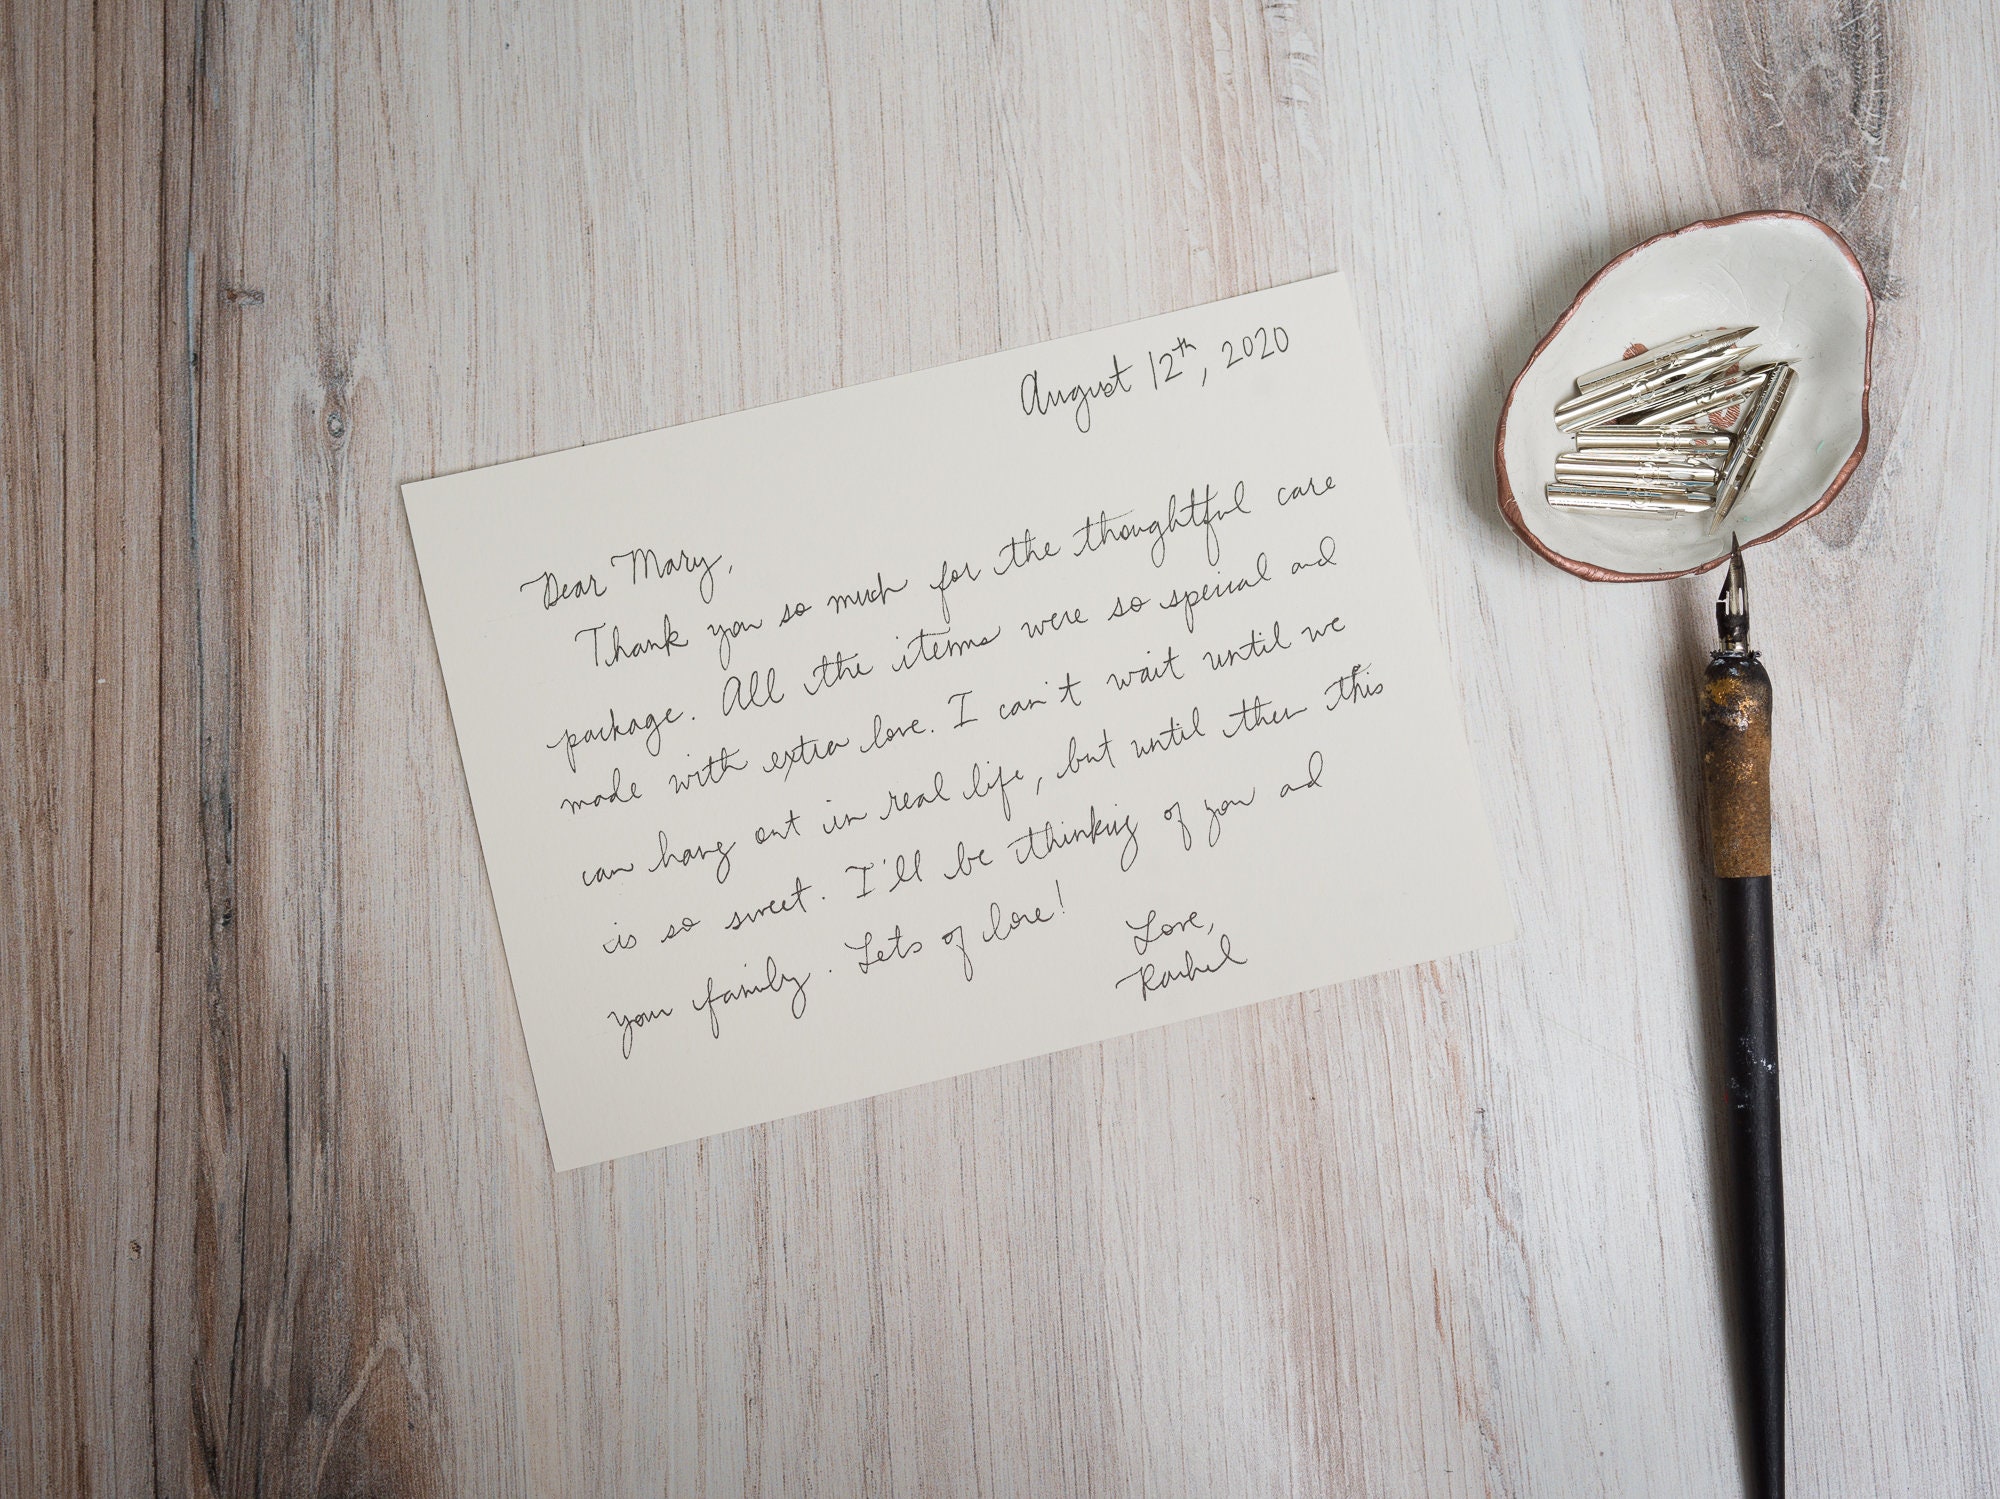 August 12th, 2020
Dear Mary,
Thank you so much for the thoughtful care
package. All the items were so special and
made with extra love. I can't wait until we
can hang out in real life, but until then this
is so sweet. I'll be thinking of you and
your family. Lots of love!
Love,
Rachel